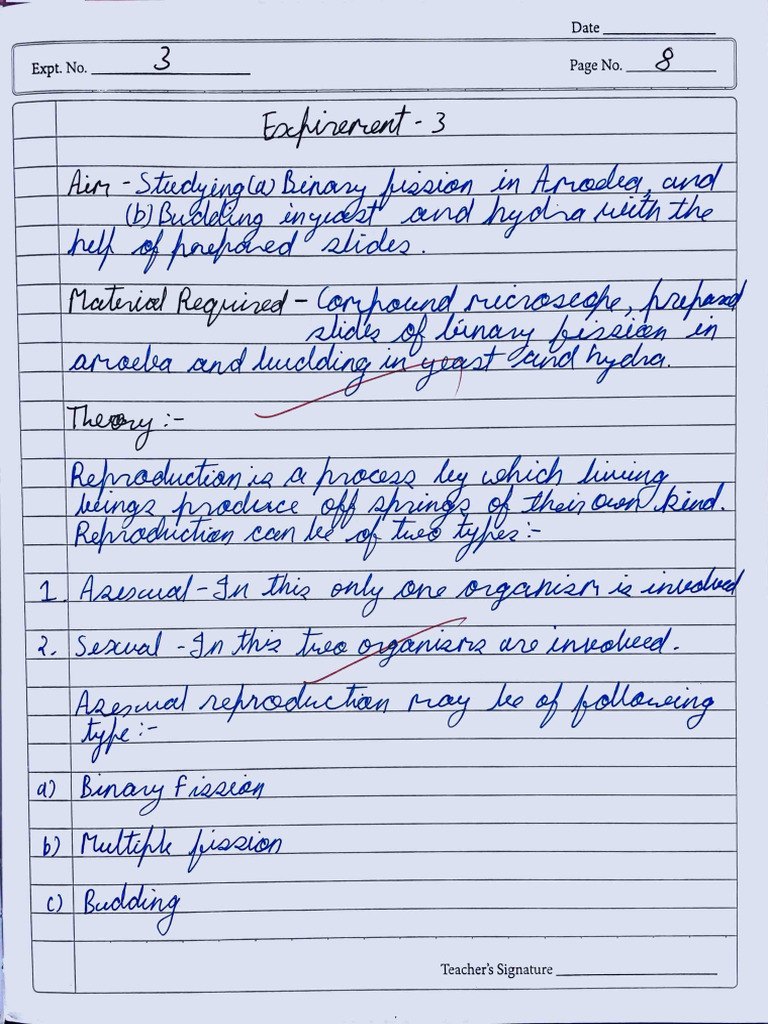 Date
Expt. No. 3
Page No. 8
Expirement - 3
Aim - Studying (a) Binary fission in Amoeba, and
(b) Budding in yeast and hydra with the
help of prepared slides.
Material Required - Compound microscope, prepared
slides of binary fission in
amoeba and budding in yeast and hydra.
Theory :-
Reproduction is a process by which living
beings produce off springs of their own kind.
Reproduction can be of two types:-
1. Asexual - In this only one organism is involved
2. Sexual - In this two organisms are involved.
Asexual reproduction may be of following
type:-
a) Binary Fission
b) Multiple fission
c) Budding
Teacher's Signature